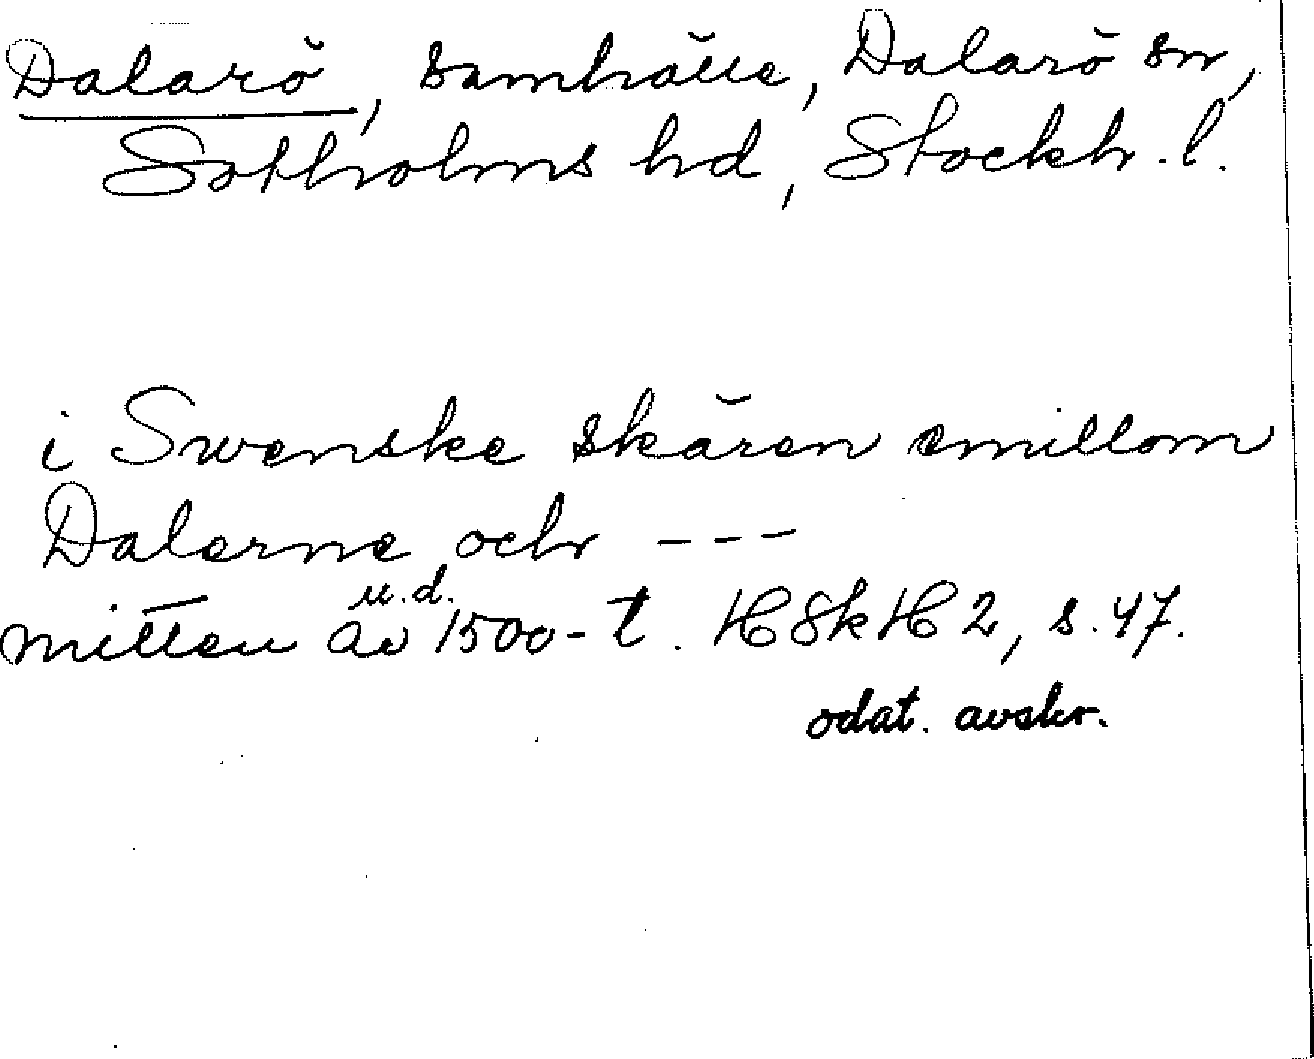 Dalarö, samhälle, Dalarö sn,
Sotholms hd, Stockh. l.
i Swenske skären emillom
Dalerne och ---
u.d.
mitten av 1500-t. HSkH 2, s. 47.
odat. avskr.